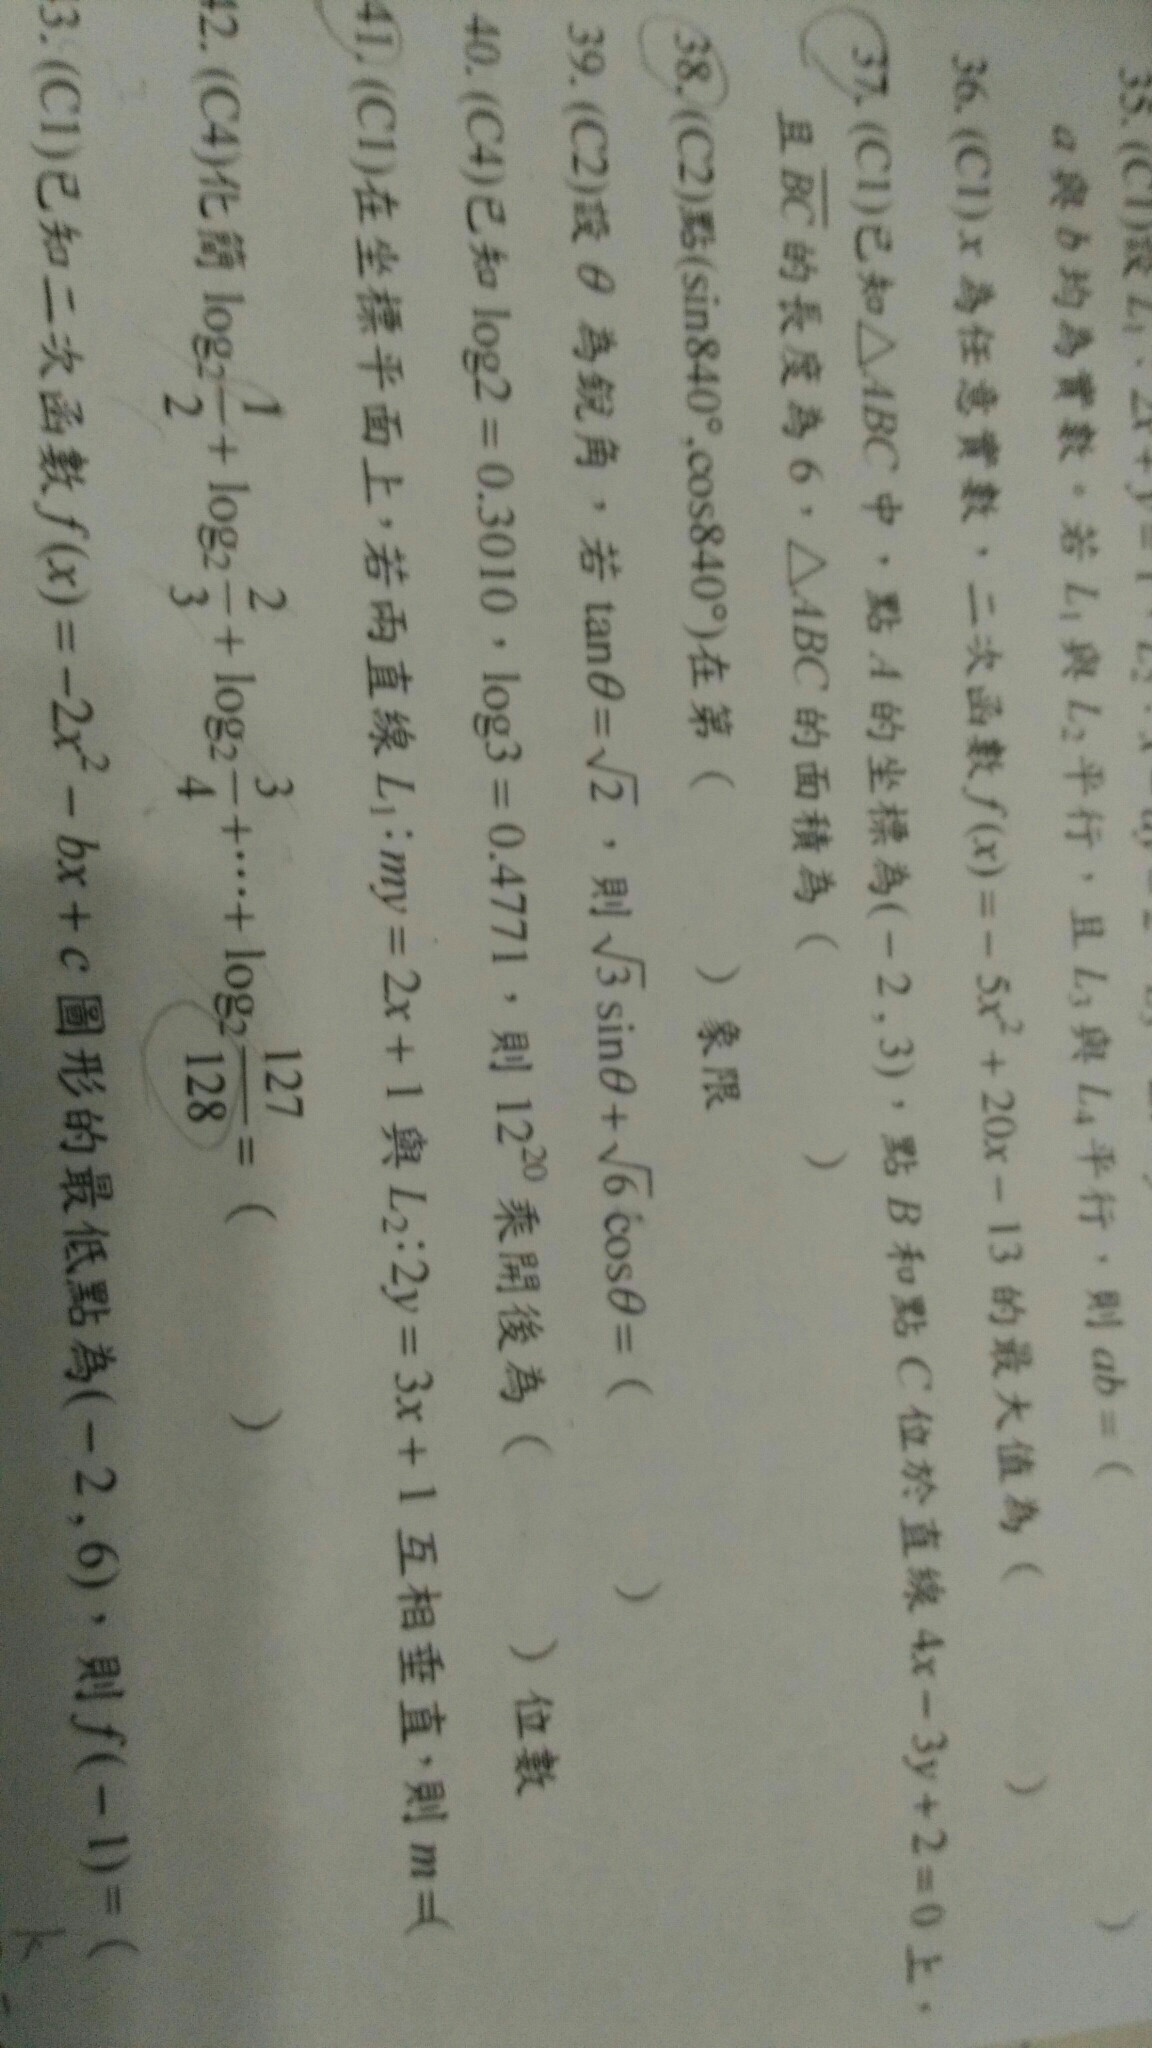 35. (C1)設 L₁：2x + y = 1
a 與 b 均為實數。若 L₁ 與 L₂ 平行，且 L₃ 與 L₄ 平行，則 ab = ( )
36. (C1) x 為任意實數，二次函數 f(x) = − 5x² + 20x − 13 的最大值為 ( )
37. (C1)已知△ABC 中，點 A 的坐標為(− 2 , 3)，點 B 和點 C 位於直線 4x − 3y + 2 = 0 上，
且 BC 的長度為 6，△ABC 的面積為 ( )
38. (C2)點(sin840°,cos840°)在第 ( ) 象限
39. (C2)設 θ 為銳角，若 tanθ = √2，則 √3 sinθ + √6 cosθ = ( )
40. (C4)已知 log2 = 0.3010，log3 = 0.4771，則 12²⁰ 乘開後為 ( ) 位數
41. (C1)在坐標平面上，若兩直線 L₁：my = 2x + 1 與 L₂：2y = 3x + 1 互相垂直，則 m =(
42. (C4)化簡 log₂ 1/2 + log₂ 2/3 + log₂ 3/4 + ⋯ + log₂ 127/128 = ( )
3. (C1)已知二次函數 f(x) = −2x² − bx + c 圖形的最低點為(− 2 , 6)，則 f(− 1) = (
k